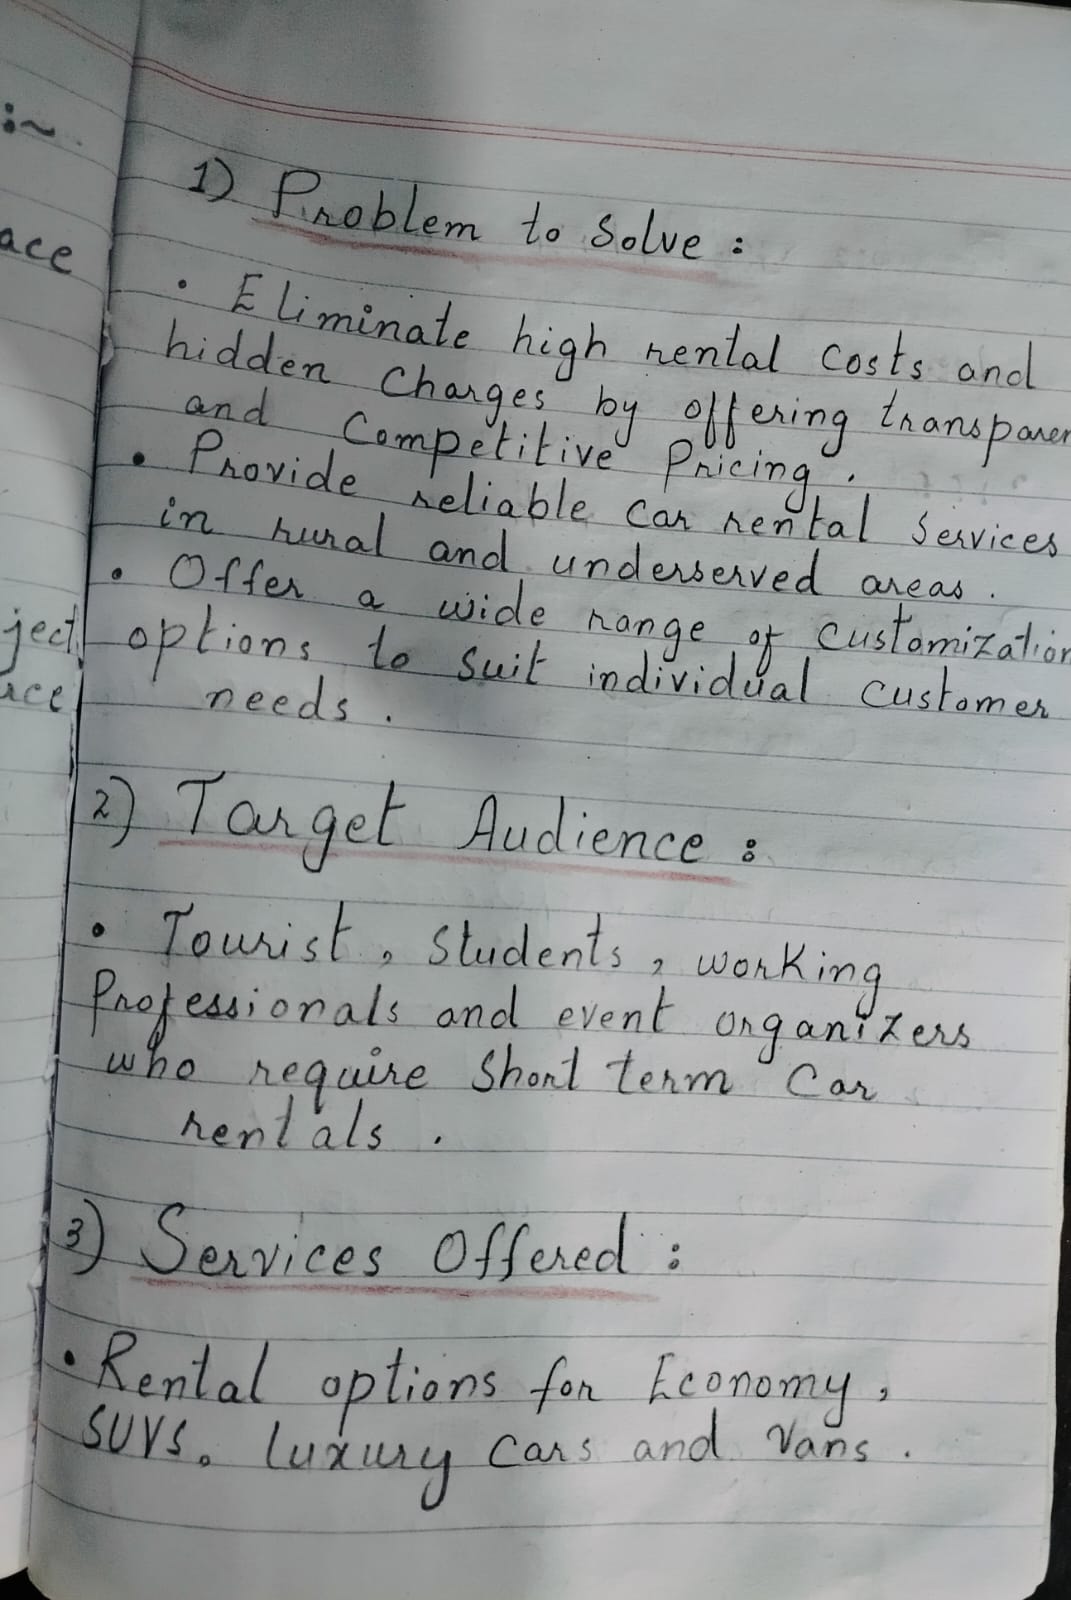 :~
ace
ject
ace
1) Problem to Solve :
• Eliminate high rental Costs and
hidden Charges by offering transparen
and Competitive Pricing .
• Provide reliable Car rental Services
in rural and underserved areas .
• Offer a wide range of Customization
options to suit individual Customer
needs .
2) Target Audience :
• Tourist , Students , working
Professionals and event organizers
who require Short term Car
rentals .
3) Services Offered :
• Rental options for Economy ,
SUVS, luxury Cars and Vans .